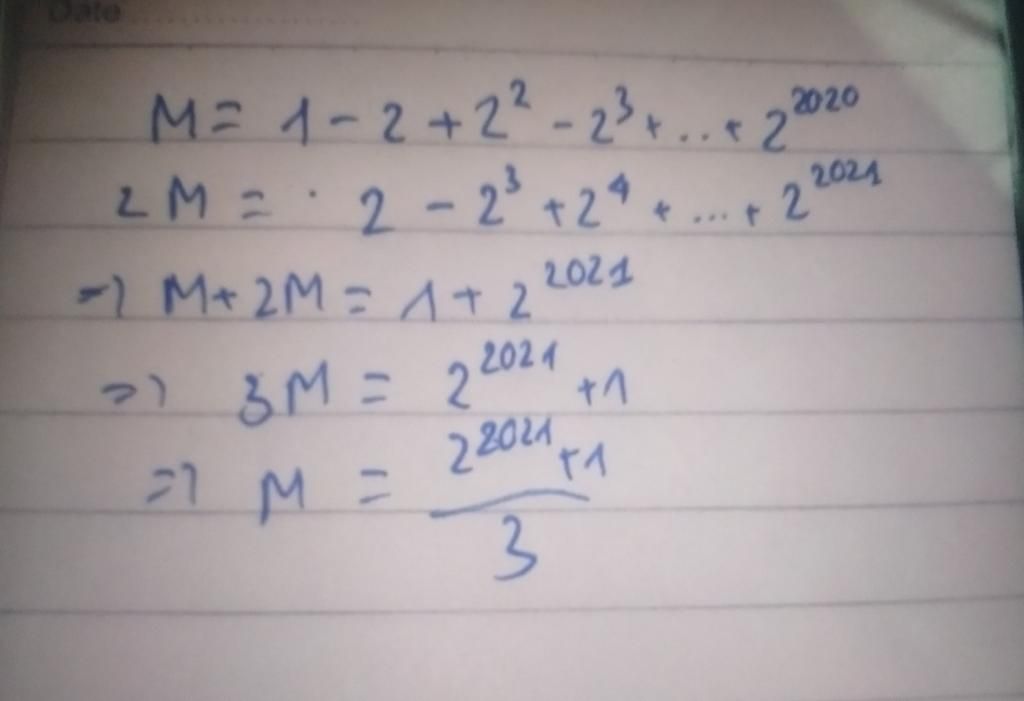 Date ....................
M = 1 - 2 + 2² - 2³ + ... + 2²⁰²⁰
2M = · 2 - 2³ + 2⁴ + ... + 2²⁰²¹
=> M + 2M = 1 + 2²⁰²¹
=> 3M = 2²⁰²¹ + 1
=> M = (2²⁰²¹ + 1) / 3